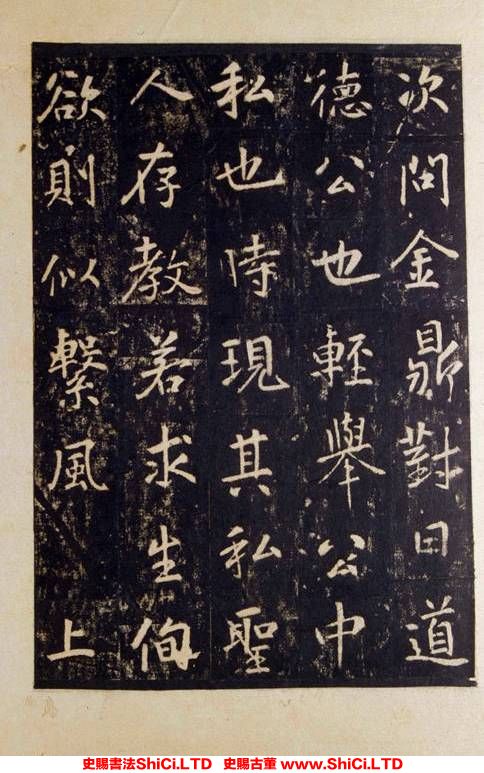 次問金鼎對曰道
德公也輕舉公中
私也時現其私聖
人存教若求生侚
欲則似繫風 上
史賜書法ShiCi.LTD 史賜古董 www.ShiCi.LTD